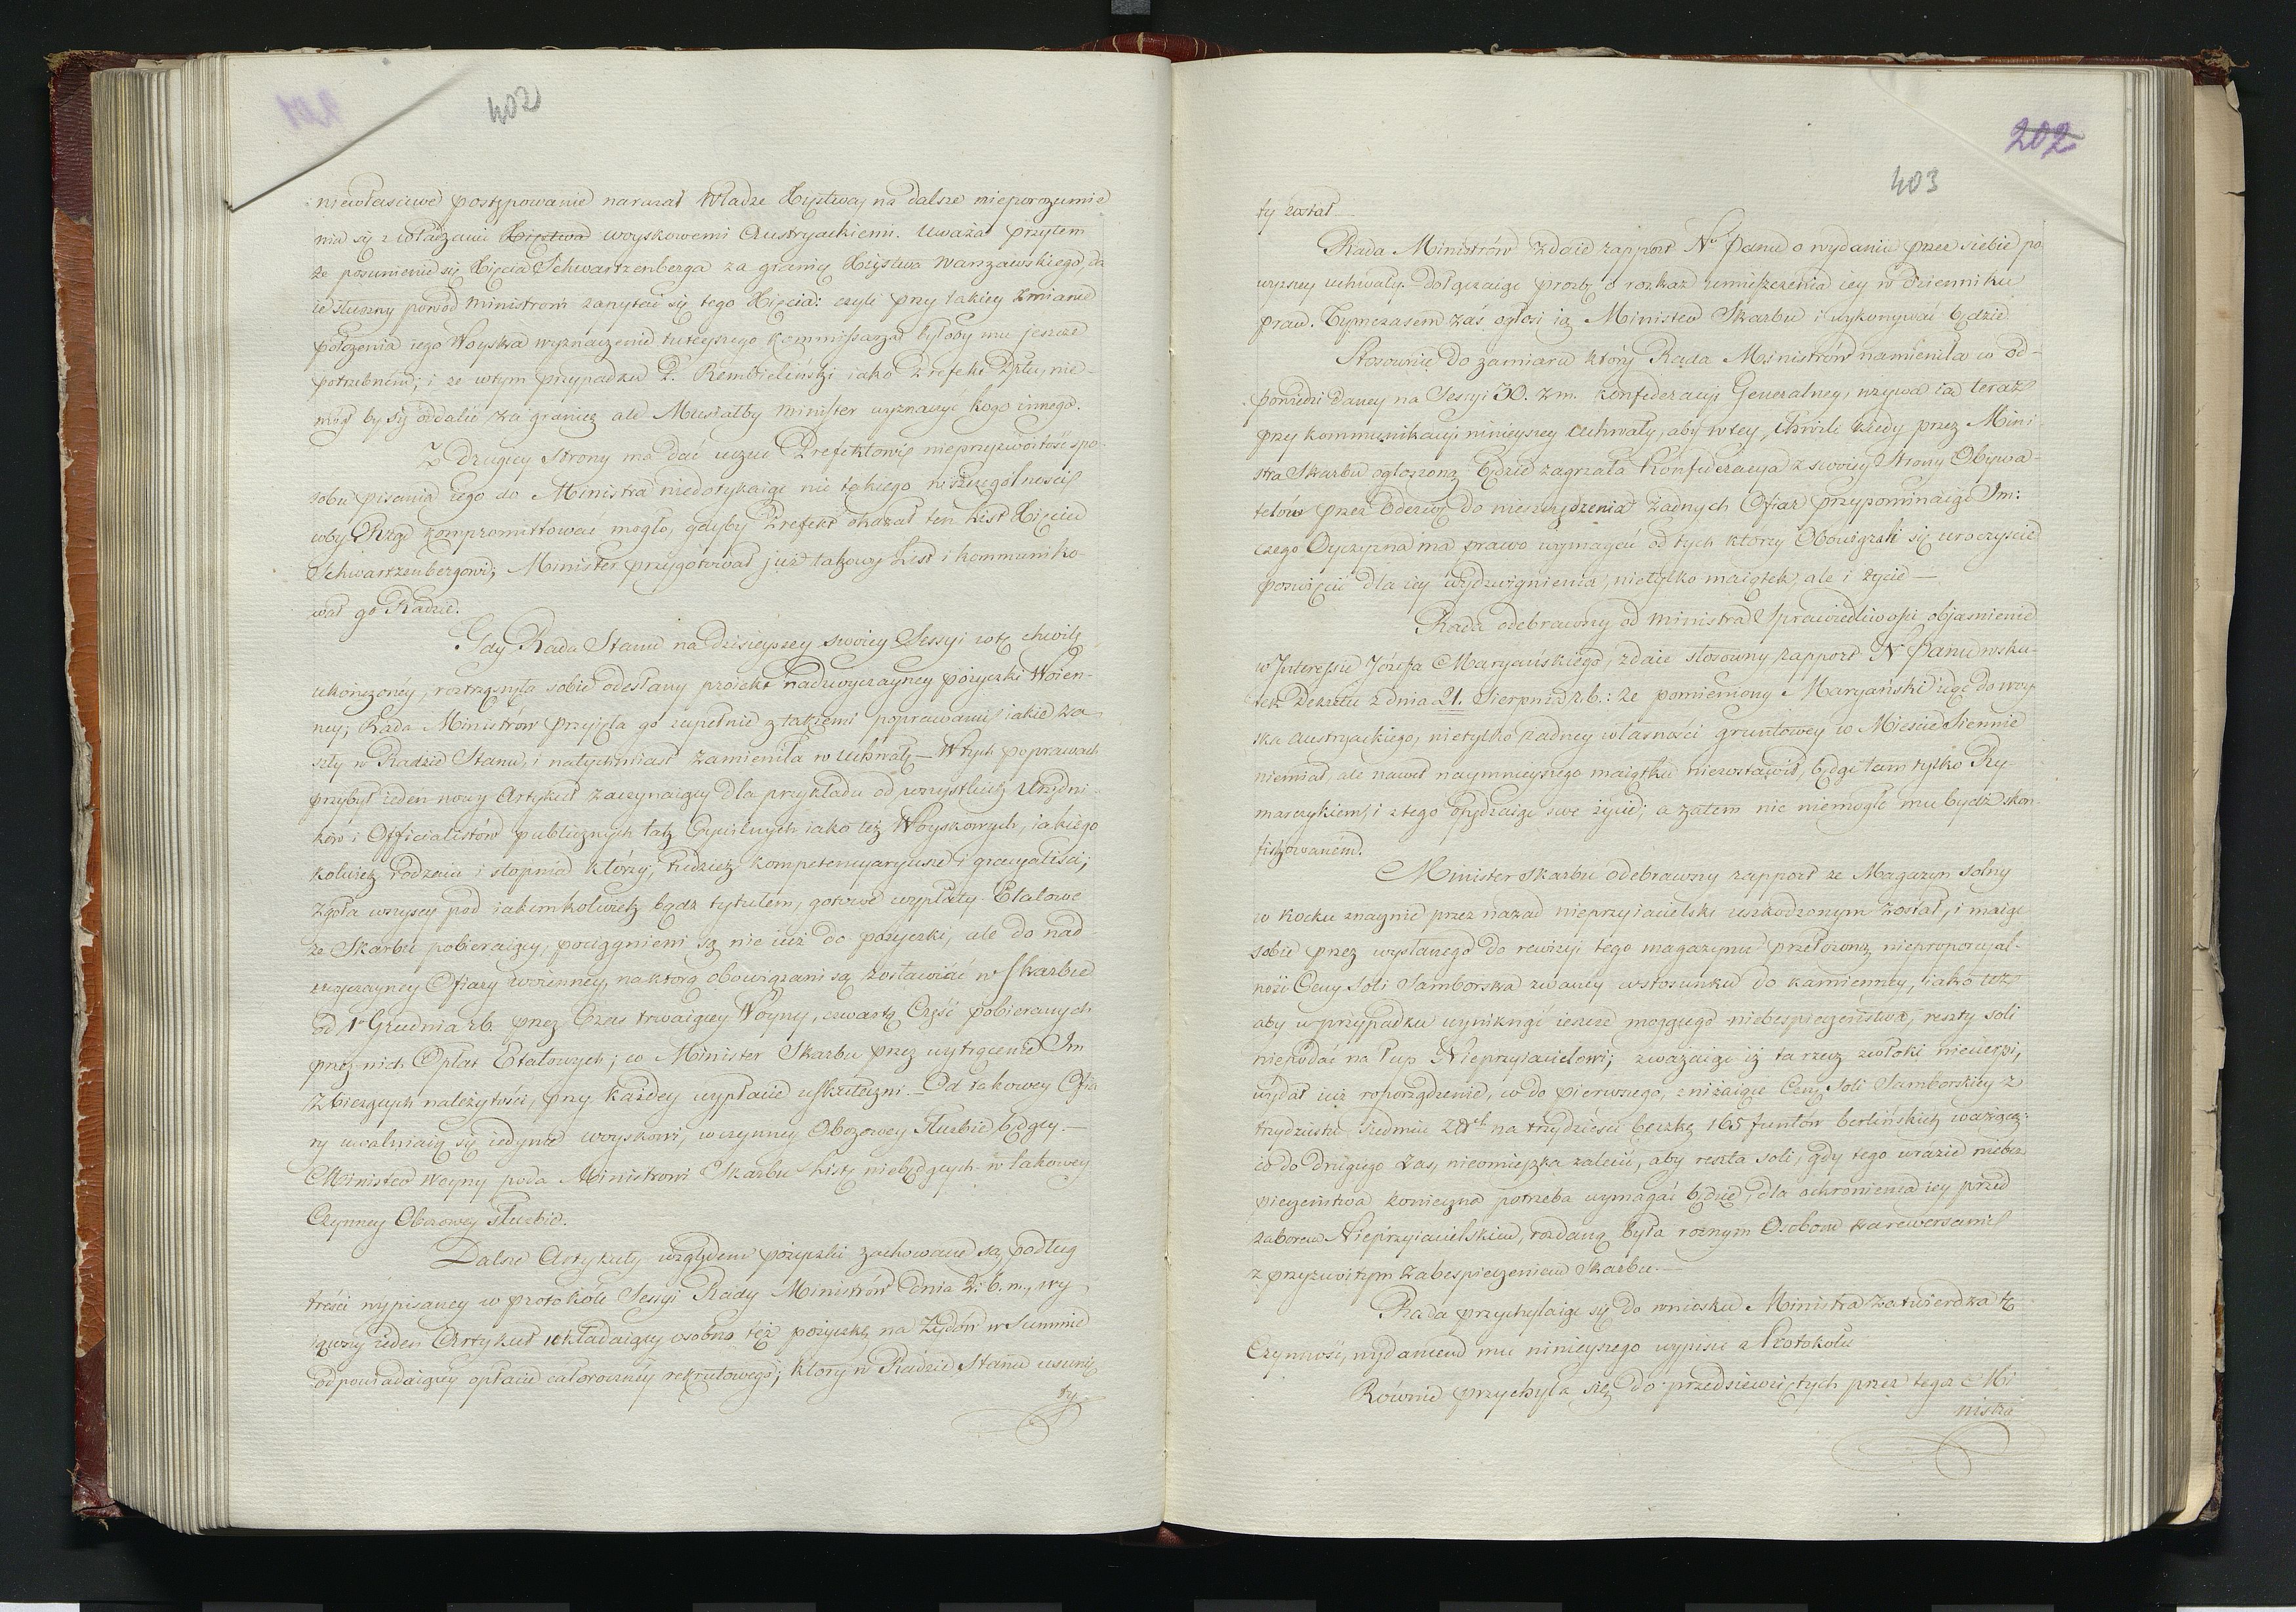 402
niewłaściwe postępowanie narażał Władze Xięstwa na dalsze nieporozumie
nia się z władzami Xięstwa woyskowemi Austryackiemi. Uważał przytem
że posunienie się Xięcia Schwartzenberga za granicę Xięstwa Warszawskiego, da
ie słuszny powód Ministrom zapytać się tego Xięcia: czyli przy takiey zmianie
położenia iego Woyska wyznaczenie tuteyszego Kommissarza byłoby mu jeszcze
potrzebnem; i że wtym przypadku P. Rembieliński iako Prefekt Dpttu, nie-
mógł by się oddalić za granicę ale Musiałby Minister wyznaczyć kogo innego.
Z Drugiey Strony ma dać uczuć Prefektowi nieprzyzwoitość spo-
sobu pisania iego do Ministra niedotykaiąc nic takiego wszczególności
coby Rząd kompromittować mogło, gdyby Prefekt okazał ten List Xięciu
Schwartzenbergowi; Minister przygotował już takowy List i kommuniko-
wał go Radzie.
Gdy Rada Stanu na dzisieyszey swoiey Sessyi wtę chwilę
ukończoney, roztrząsnęła sobie odesłany proiekt nadzwyczayney pożyczki Woien-
ney; Rada Ministrów przyięła go zupełnie z takiemi poprawami iakie za
szły w Radzie Stanu, i natychmiast zamieniła w uchwałę — W tych poprawach
przybył ieden nowy Artykuł zaczynaiący dla przykładu od wszystkich Urzędni-
ków i Officialistów publicznych tak Cywilnych iako też Woyskowych, iakiego
kolwiek rodzaiu i stopnia którzy, tudzież kompetencyaryusze i gracyaliści;
zgoła wszyscy pod iakimkolwiek bądź tytułem, gotowe wypłaty Etatowe
ze Skarbu pobieraiący, pociągnieni są nie iuż do pożyczki, ale do nad-
zwyczayney Ofiary woienney, na którą obowiązani są zostawiać w Skarbie
od 1º Grudnia r.b. przez Czas trwaiącey Woyny, czwartą Część pobieranych
przez nich Opłat Etatowych; co Minister Skarbu przez wytrącenie Im
z bieżących należytości, przy każdey wypłacie uskuteczni. — Od takowey Ofia
ry uwalniaią się iedynie woyskowi, w czynney Obozowey Służbie będący. —
Minister Woyny poda Ministrowi Skarbu Listę niebędących w takowey
Czynney Obozowey służbie.
Dalsze Artykuły względem pożyczki zachowane są podług
treści wypisaney w protokole Sessyi Rady Ministrów dnia 2. b.m., wy
iąwszy ieden Artykuł wkładaiący osobno też pożyczkę na Żydów w Summie
odpowiadaiącey opłacie całoroczney rekrutowego; który w Radzie Stanu usunię
ty
202
403
ty został —
Rada Ministrów zdaie rapport Nu Panu o wydaniu przez siebie po
wyższey uchwały. Dołączaiąc prozbę o rozkaz umieszczenia iey w Dzienniku
praw. Tymczasem zaś ogłosi ią Minister Skarbu i wykonywać będzie
Stosownie do zamiaru który Rada Ministrów namieniła w od-
powiedzi daney na Sessyi 30. z.m. Konfederacyi Generalney, wzywa ią teraz
przy kommunikacyi ninieyszey uchwały, aby w tey chwili kiedy przez Mini
stra Skarbu ogłoszoną będzie zagrzała Konfederacya z swoiey Strony Obywa-
telów przez Odezwę do nieszczędzenia żadnych Ofiar przypominaiąc Im:
czego Oyczyzna ma prawo wymagać od tych którzy Obowiązali się uroczyście
poświęcić dla iey wydzwignienia, nietylko maiątek, ale i życie —
Rada odebrawszy od Ministra Sprawiedliwości objasnienie
w Interessie Józefa Maryańskiego, zdaie stosowny rapport N. Panu wsku-
tek Dekretu z dnia 21. Sierpnia r.b.: że pomieniony Maryański idąc do woy-
ska Austryackiego, nietylko żadney własności gruntowey w Mieście Siennie
niemiał, ale nawet naymnieyszego maiątku niezostawił, będąc tam tylko Ry-
marczykiem, i z tego opędzaiąc swe życie; a zatem nic niemogło mu bydź skon-
fiskowanem.
Minister Skarbu odebrawszy rapport że Magazyn Solny
w Kocku znacznie przez nazad nieprzyiacielski uszkodzonym został, i maiąc
sobie przez wysłanego do rewizyi tego magazynu przełożoną nieproporcyal-
ność Ceny Soli Samborska zwaney w stosunku do kamienney, iako też
aby w przypadku wyniknąć ieszcze mogącego niebespieczeństwa, reszty soli
nieoddać na łup Nieprzyiacielowi; zważaiąc iż ta rzecz zwłoki niecierpi,
wydał iuż rozporządzenie, co do pierwszego, zniżaiąc Cenę Soli Samborskiey z
trzydziestu siedmiu Złtch na trzydzieści beczkę 165 funtów berlińskich ważącą:
co do drugiego zaś, nieomieszka zalecić, aby reszta soli, gdy tego wrazie niebez
pieczeństwa konieczna potrzeba wymagać będzie, dla ochronienia iey przed
zaborem Nieprzyiacielskim, rozdaną była roznym Osobom za rewersami
z przyzwoitym zabespieczeniem Skarbu. —
Rada przychylaiąc się do wniosku Ministra zatwierdza tę
Czynność, wydaniem mu ninieyszego wypisu z Protokołu
Równie przychyla się do przedsięwziętych przez tegoż Mi
nistra